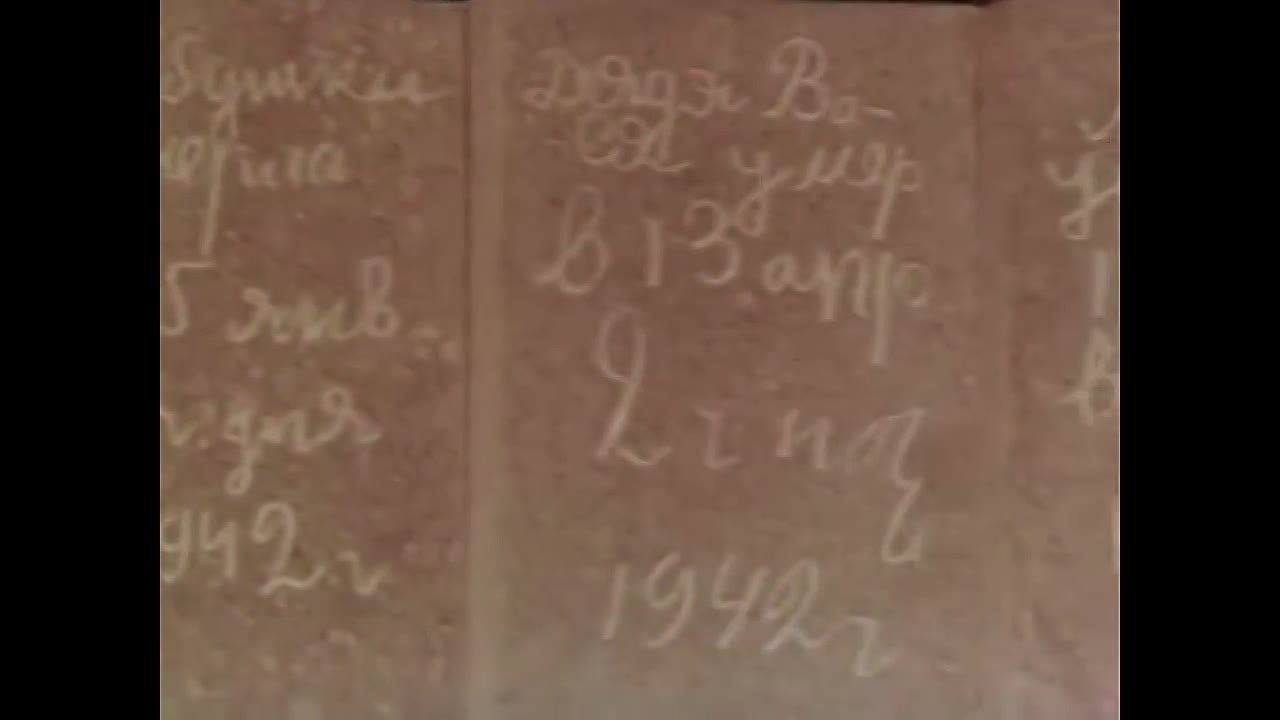 бушка
ерла
5 янв.
ч. дня
942 г
Дядя Ва-
ся умер
в 13 апр
2 ч ноч
1942 г
у
1
в